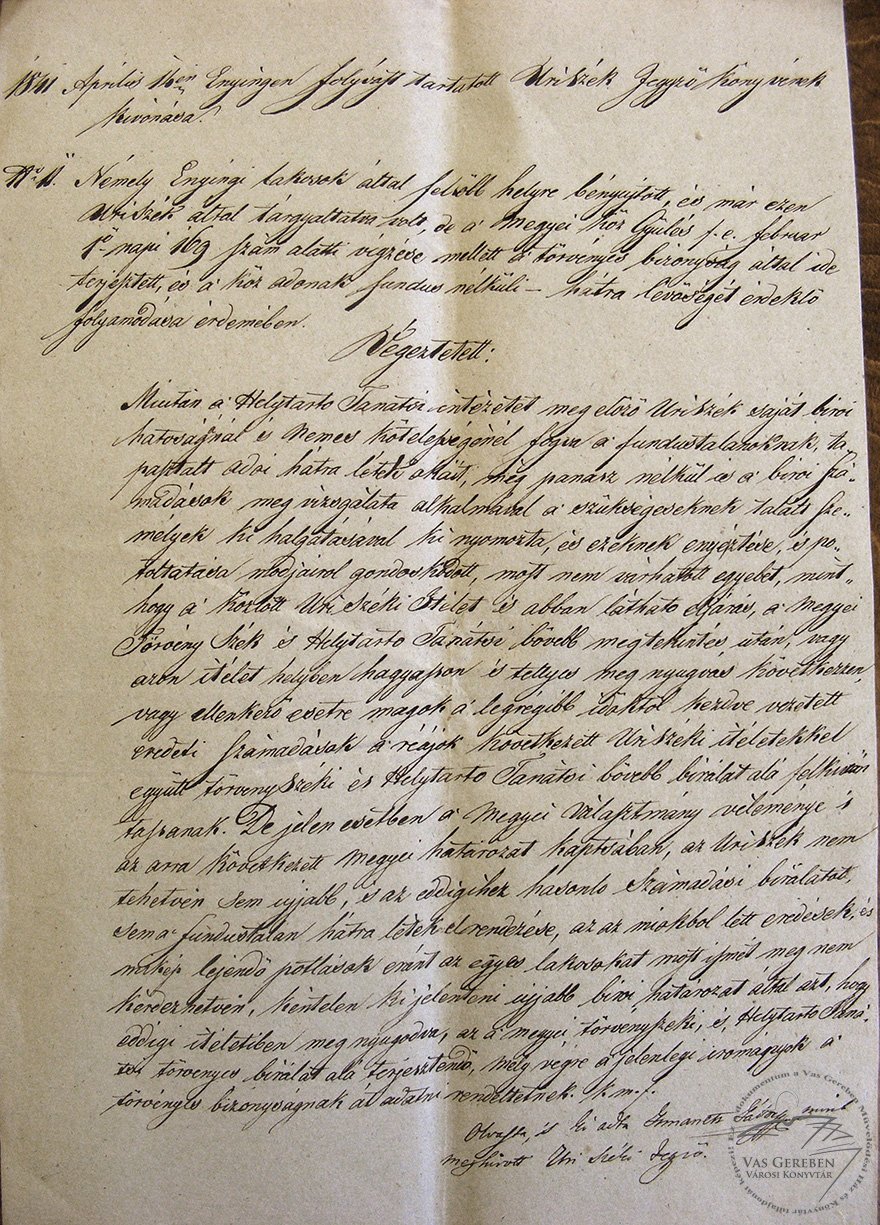 1841 Április 16en Enyingen folyvást tartatott Uriszék Jegyző Könyvének
kivonása.
No 11. Némely Enyingi lakosok által felsőbb helyre bényujtott, és már ezen
Uriszék által tárgyaltatva volt, de a Megyei Köz Gyülés f. e. februar
1ő napi 1619 szám alatti végzése mellett a törvényes bizonyság által ide
terjesztett, és a köz adonak fundus nélküli – hátra lévőségét érdeklő
folyamodása érdemében.
Végeztetett:
Miután a Helytarto Tanátsi intézetet meg előző Uriszék saját birói
hatoságnál és Nemes kötelességénél fogva a fundustalanoknak, ta
pasztalt adoi hátra létek okait, még panasz nélkül is a birói szá-
madások meg vizsgálata alkalmával a szükségeseknek talált Sze-
mélyek ki halgatásával ki nyomozta, és ezeknek enyésztése, 's po-
toltatása modjairol gondoskodott, most nem várhatott egyebet, mint-
hogy a közlött Uri Széki itélet 's abban látható eljárás, a Megyei
Törvény Szék és Helytarto Tanátsi bővebb megtekintés után, vagy
azon itélet helyben hagyasson és tellyes meg nyugvás következzen,
vagy ellenkező esetre magok a legrégibb időktől kezdve vezetett
eredeti Számadások a réájok következett Uriszéki itéletekkel
együtt törvényszéki és Helytarto Tanátsi bővebb birálat alá
tassanak. De jelen esetben a Megyei Választmány véleménye 's
az arra következett Megyei határozat kaptsában, az Uriszék nem
tehetvén sem ujjabb, 's az eddigihez hasonlo Számadási birálatot,
sem a fundustalan hátra létek elrendezése, az az miokbol lett eredések, és
mikép lejendő potlások eránt az egyes lakosokat most ismét meg nem
kérdezhetvén, kéntelen ki jelenteni ujjabb birói határozat által azt, hogy
eddigi itéletiben meg nyugodva, az a megyei törvényszéki, és Helytarto Taná-
tsi törvényes birálat alá terjesztendő, mely végre a jelenlegi iromanyok a
törvényes bizonyságnak át adatni rendeltetnek. k.m.f.
Olvasta, és ki adta mint
Uri Széki Jegyző.
VAS GEREBEN
VÁROSI KÖNYVTÁR